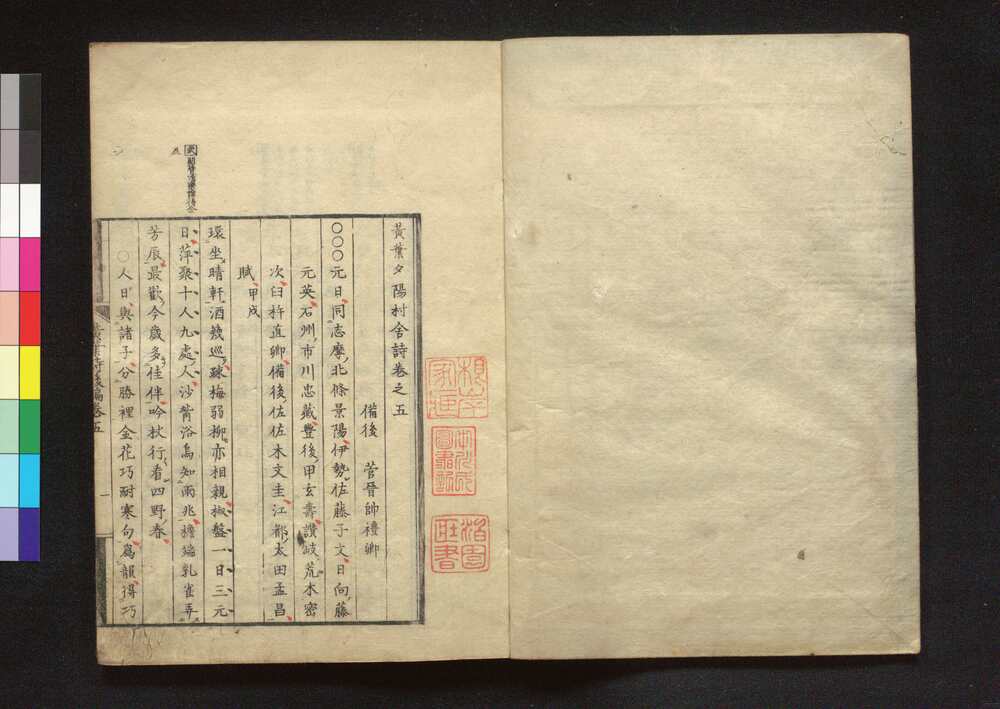 黃葉夕陽村舍詩卷之五
備後 菅晉帥禮卿
〇〇〇元日同志摩北條景陽伊勢佐藤子文日向藤
元英石州市川忠藏豐後甲玄壽讚岐荒木密
次臼杵直卿備後佐佐木文圭江都太田孟昌
賦甲戌
環坐晴軒酒幾巡疎梅弱柳亦相親椒盤一日三元
日萍聚十人九處人沙觜浴鳧知雨兆檐端乳雀弄
芳辰最歡今歲多佳伴吟杖行看四野春
〇人日與諸子分勝裡金花巧耐寒句爲韻得巧